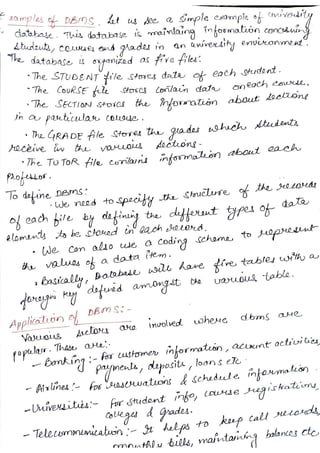 Examples of DBMS. Let us see a simple example of university
database. This database is maintaing Information concerning
students, courses and grades in an university environment.
The database is organized as five files:
• The STUDENT file stores data of each student.
• The COURSE file stores contain data on each course.
• The SECTION stores the Information about sections
in a particular course.
• The GRADE file stores the grades which students
receive in the various sections.
• The TUTOR file contains information about each
professor.
To define DBMS:
• We need to specify the structure of the records
of each file by defining the different types of data
elements to be stored in each record.
• We can also use a coding scheme to represent
the values of a data item.
• Basically, Database will have five tables with a
foreign key defined amongst the various table.
Application of DBMS:-
Various sectors are involved where dbms are
popular. These are:-
- Banking:- For customer information, account activities,
payments, deposits, loans etc.
- Airlines:- For reservations & schedule information.
- Universities:- For student info, course registrations,
colleges & grades.
- Telecommunication:- It helps to keep call records,
monthly bills, maintaining balances etc